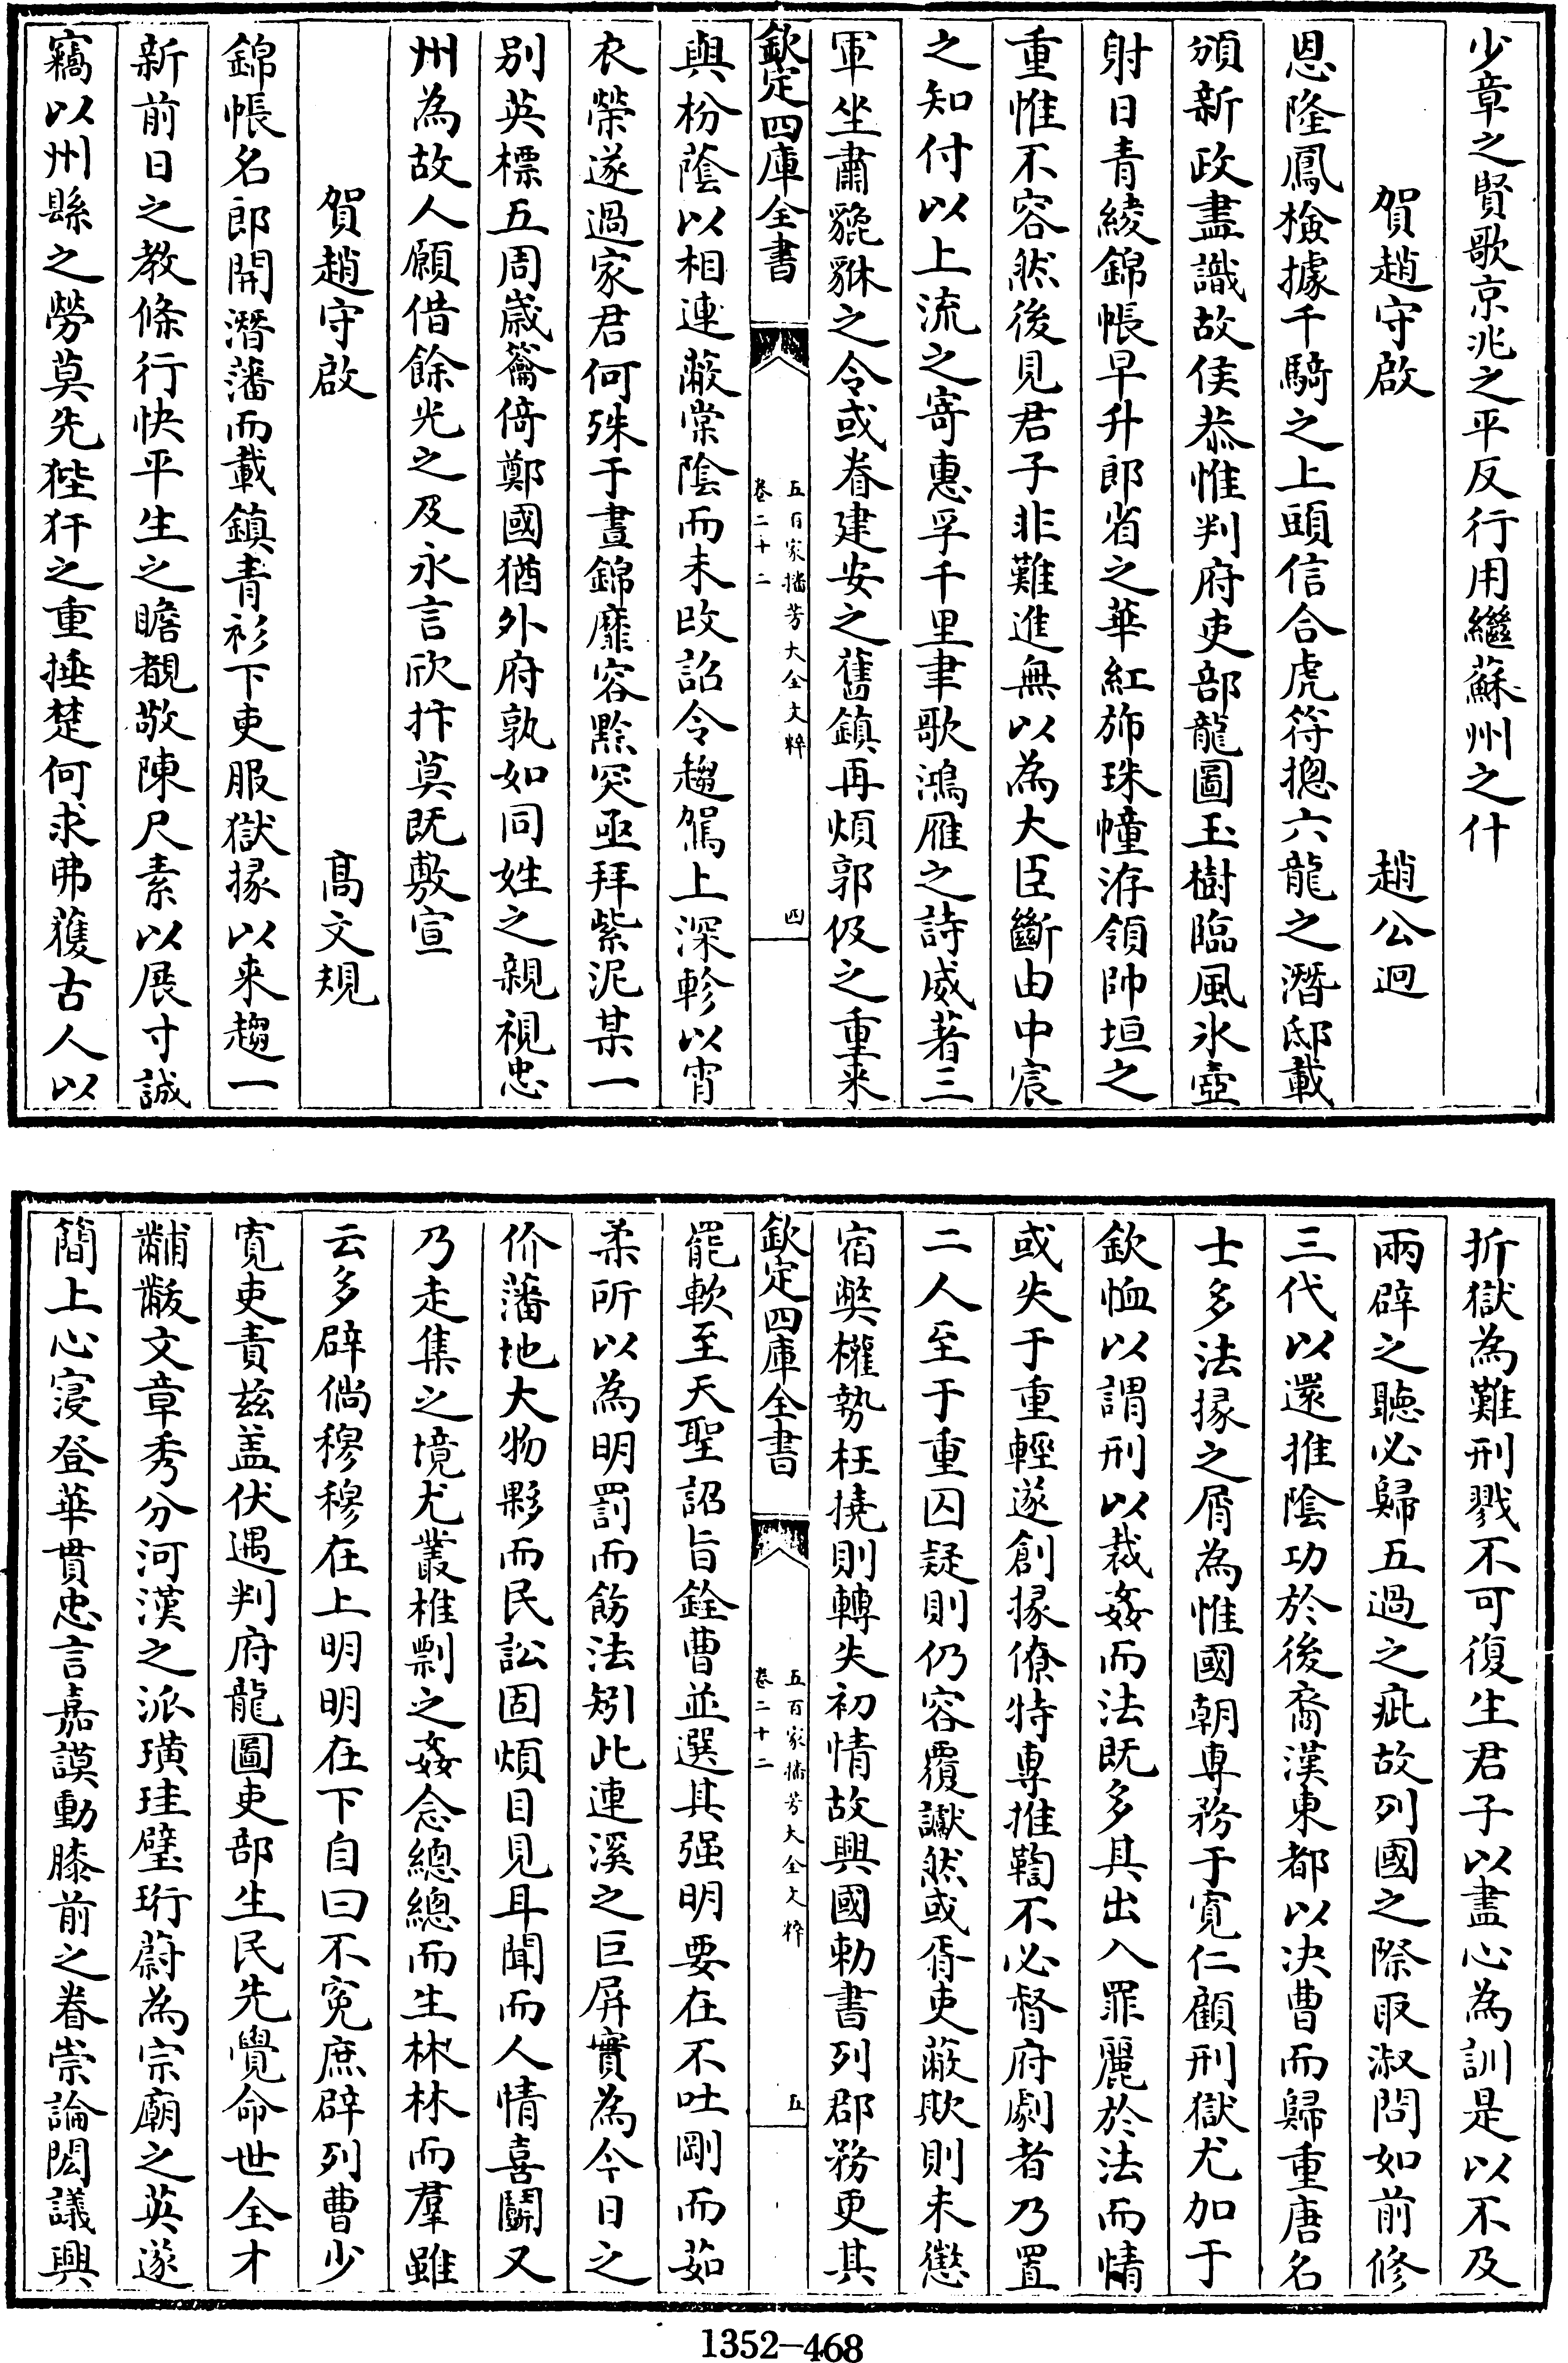 少章之賢歌京兆之平反行用繼蘇州之什
賀趙守啟　趙公迥
恩隆鳳檢據千騎之上頭信合虎符摠六龍之潛邸載
頒新政盡識故侯恭惟判府吏部龍圖玉樹臨風氷壺
射日青綾錦帳早升郎省之華紅斾珠幢洊領帥垣之
重惟不容然後見君子非難進無以為大臣斷由中宸
之知付以上流之寄惠孚千里聿歌鴻雁之詩威著三
軍坐肅貔貅之令或眷建安之舊鎮再煩郭伋之重来
欽定四庫全書
五百家播芳大全文粹
卷二十二
四
與枌蔭以相連蔽棠陰而未改詔令趨駕上深軫以宵
衣榮遂過家君何殊于晝錦靡容黔突亟拜紫泥某一
别英標五周歲籥倚鄭國猶外府孰如同姓之親視忠
州為故人願借餘光之及永言欣抃莫既敷宣
賀趙守啟　髙文規
錦帳名郎開潛藩而載鎮青衫下吏服獄掾以来趨一
新前日之教條行快平生之瞻覩敬陳尺素以展寸誠
竊以州縣之勞莫先狴犴之重捶楚何求弗獲古人以
折獄為難刑戮不可復生君子以盡心為訓是以不及
兩辟之聽必歸五過之疵故列國之際取淑問如前修
三代以還推陰功於後裔漢東都以决曹而歸重唐名
士多法掾之屑為惟國朝専務于寛仁顧刑獄尤加于
欽恤以謂刑以裁姦而法既多其出入罪麗於法而情
或失于重輕遂創掾僚特専推鞫不必督府劇者乃置
二人至于重囚疑則仍容覆讞然或胥吏蔽欺則未懲
宿弊權勢枉撓則轉失初情故興國勅書列郡務更其
欽定四庫全書
五百家播芳大全文粹
卷二十二
五
罷軟至天聖詔旨銓曹並選其强明要在不吐剛而茹
柔所以為明罰而飭法矧此連溪之巨屏實為今日之
价藩地大物夥而民訟固煩目見耳聞而人情喜鬬又
乃走集之境尤叢椎剽之姦念總總而生林林而羣雖
云多辟倘穆穆在上明明在下自曰不寃庶辟列曹少
寛吏責兹盖伏遇判府龍圖吏部生民先覺命世全才
黼黻文章秀分河漢之派璜珪璧珩蔚為宗廟之英遂
簡上心寖登華貫忠言嘉謨動膝前之眷崇論閎議興
1352-468